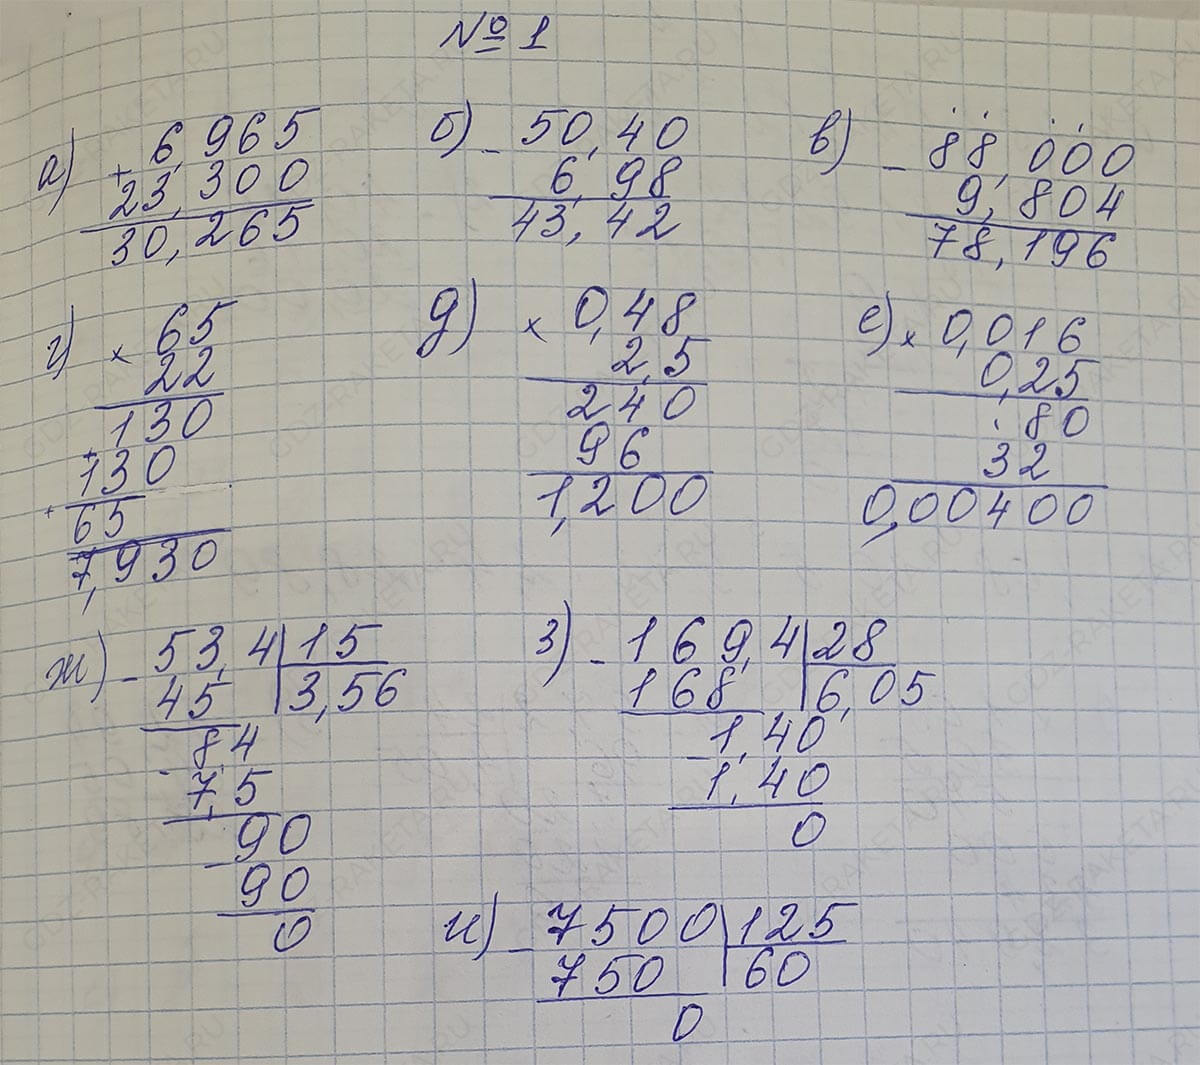 № 1
а) + 6,965
23,300
30,265
б) - 50,40
6,98
43,42
в) - 88,000
9,804
78,196
г) × 65
22
130
+ 130
+ 65
7,930
д) × 0,48
2,5
240
96
1,200
е) × 0,016
0,25
80
32
0,00400
ж) - 53,4 | 15
45 | 3,56
- 8,4
7,5
- 90
90
0
з) - 169,4 | 28
168 | 6,05
- 1,40
1,40
0
и) - 7500 | 125
750 | 60
0